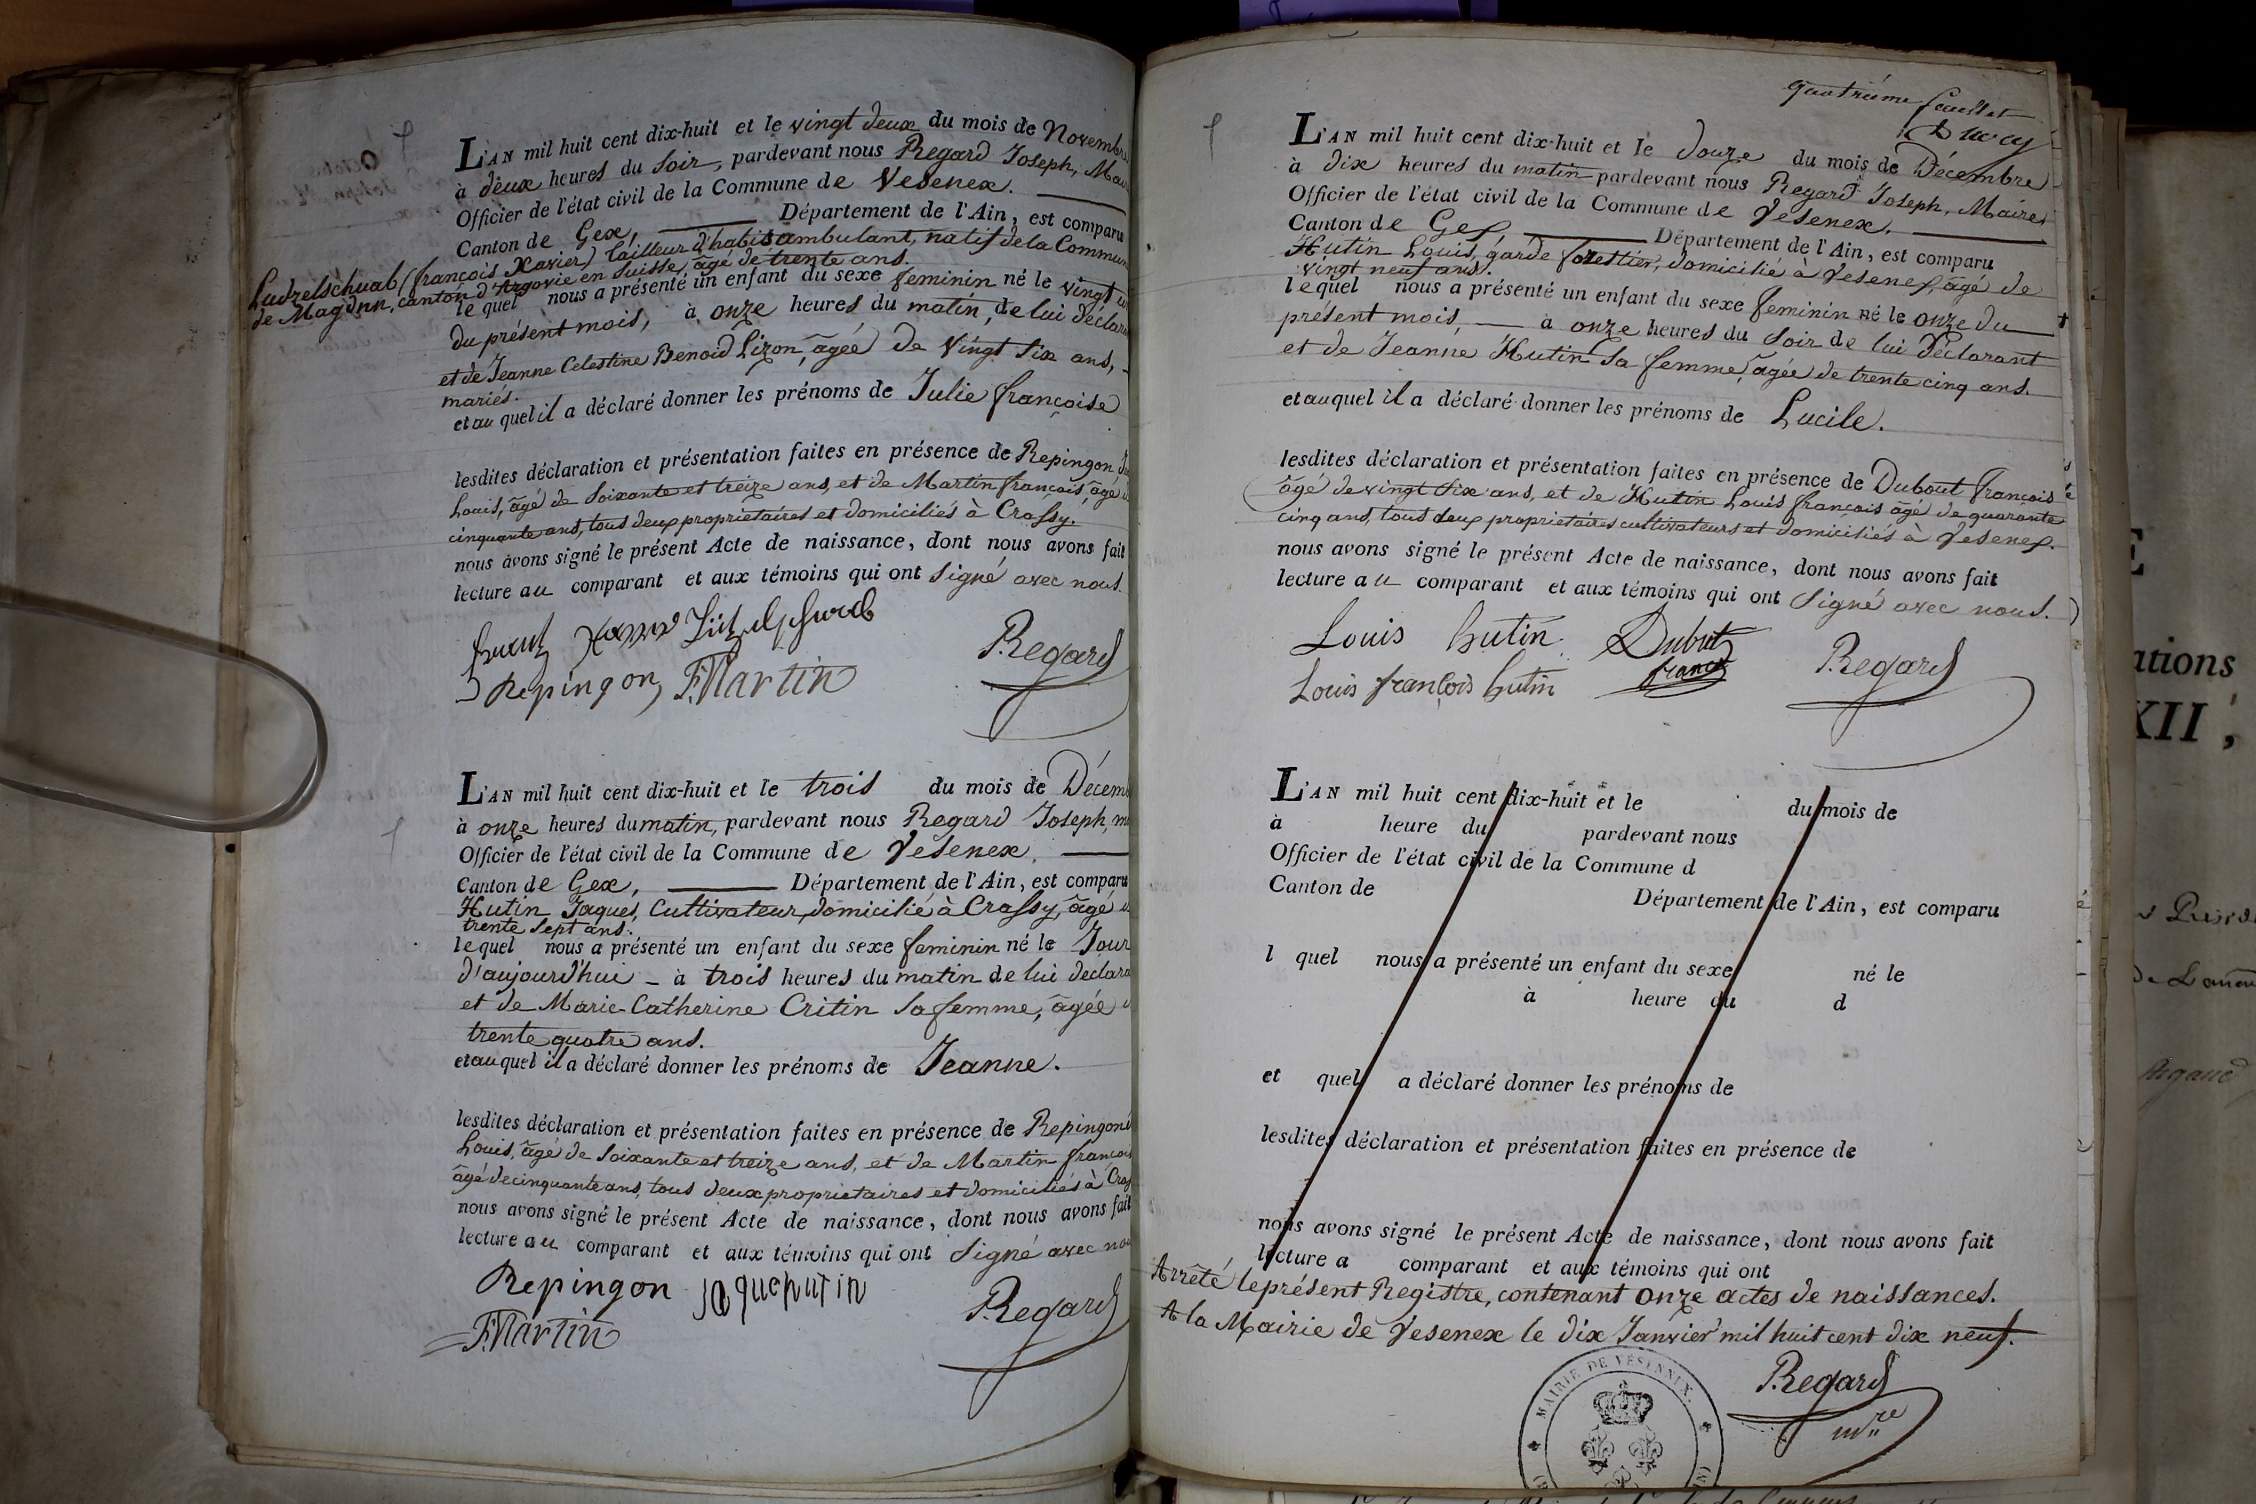 L'AN mil huit cent dix-huit et le vingt deux du mois de Novembre
à deux heures du soir, pardevant nous Regard Joseph, Mai
Officier de l'état civil de la Commune de Vesenex.
Canton de Gex, Département de l'Ain, est comparu
Ludzelschuab (françois Xavier) tailleur d'habits ambulant, natif de la Commun
de Magdnn, canton d'Argovie en Suisse, âgé de trente ans.
lequel nous a présenté un enfant du sexe feminin né le vingt
du présent mois, à onze heures du matin, de lui déclara
et de Jeanne Celestine Benoid Lizon, âgée de vingt six ans,
mariés.
et au quel il a déclaré donner les prénoms de Julie françoise
lesdites déclaration et présentation faites en présence de Repingon
Louis, âgé de soixante et treize ans, et de Martin françois, âgé
cinquante ans, tous deux proprietaires et domiciliés à Crassy.
nous avons signé le présent Acte de naissance, dont nous avons fait
lecture au comparant et aux témoins qui ont signé avec nous.
Regard
Repingon F. Martin
L'AN mil huit cent dix-huit et le trois du mois de Décem
à onze heures du matin, pardevant nous Regard Joseph, m
Officier de l'état civil de la Commune de Vesenex,
Canton de Gex, Département de l'Ain, est comparu
Hutin Jaques, Cultivateur, domicilié à Crassy, âgé
trente sept ans.
lequel nous a présenté un enfant du sexe feminin né le Jour
d'aujourd'hui - à trois heures du matin de lui declara
et de Marie-Catherine Critin sa femme, âgée
trente quatre ans.
et au quel il a déclaré donner les prénoms de Jeanne.
lesdites déclaration et présentation faites en présence de Repingon
Louis, âgé de soixante et treize ans, et de Martin françois
âgé de cinquante ans, tous deux proprietaires et domiciliés à Cras
nous avons signé le présent Acte de naissance, dont nous avons fait
lecture au comparant et aux témoins qui ont signé avec nou
Repingon jaque hutin
F. Martin Regard
quatrième feuillet
L'AN mil huit cent dix-huit et le douze du mois de Décembre
à dix heures du matin pardevant nous Regard Joseph, Maire
Officier de l'état civil de la Commune de Vesenex,
Canton de Gex, Département de l'Ain, est comparu
Hutin Louis, garde forestier, domicilié à Vesenex, âgé de
vingt neuf ans.
lequel nous a présenté un enfant du sexe feminin né le onze du
présent mois, à onze heures du soir de lui Déclarant
et de Jeanne Hutin sa femme, âgée de trente cinq ans.
et auquel il a déclaré donner les prénoms de Lucile.
lesdites déclaration et présentation faites en présence de Dubout françois
âgé de vingt six ans, et de Hutin Louis françois âgé de quarante
cinq ans, tous deux proprietaires cultivateurs et domiciliés à Vesenex.
nous avons signé le présent Acte de naissance, dont nous avons fait
lecture au comparant et aux témoins qui ont signé avec nous.
Louis hutin Dubut
franç Regard
Louis françois hutin
L'AN mil huit cent dix-huit et le du mois de
à heure du pardevant nous
Officier de l'état civil de la Commune d
Canton de Département de l'Ain, est comparu
l quel nous a présenté un enfant du sexe né le
à heure du d
et quel a déclaré donner les prénoms de
lesdites déclaration et présentation faites en présence de
nous avons signé le présent Acte de naissance, dont nous avons fait
lecture a comparant et aux témoins qui ont
Arrêté le présent Registre, contenant onze actes de naissances.
A la Mairie de Vesenex le dix Janvier mil huit cent dix neuf.
Regard
mre
MAIRIE DE VÉSENNEX.
ations
XII,